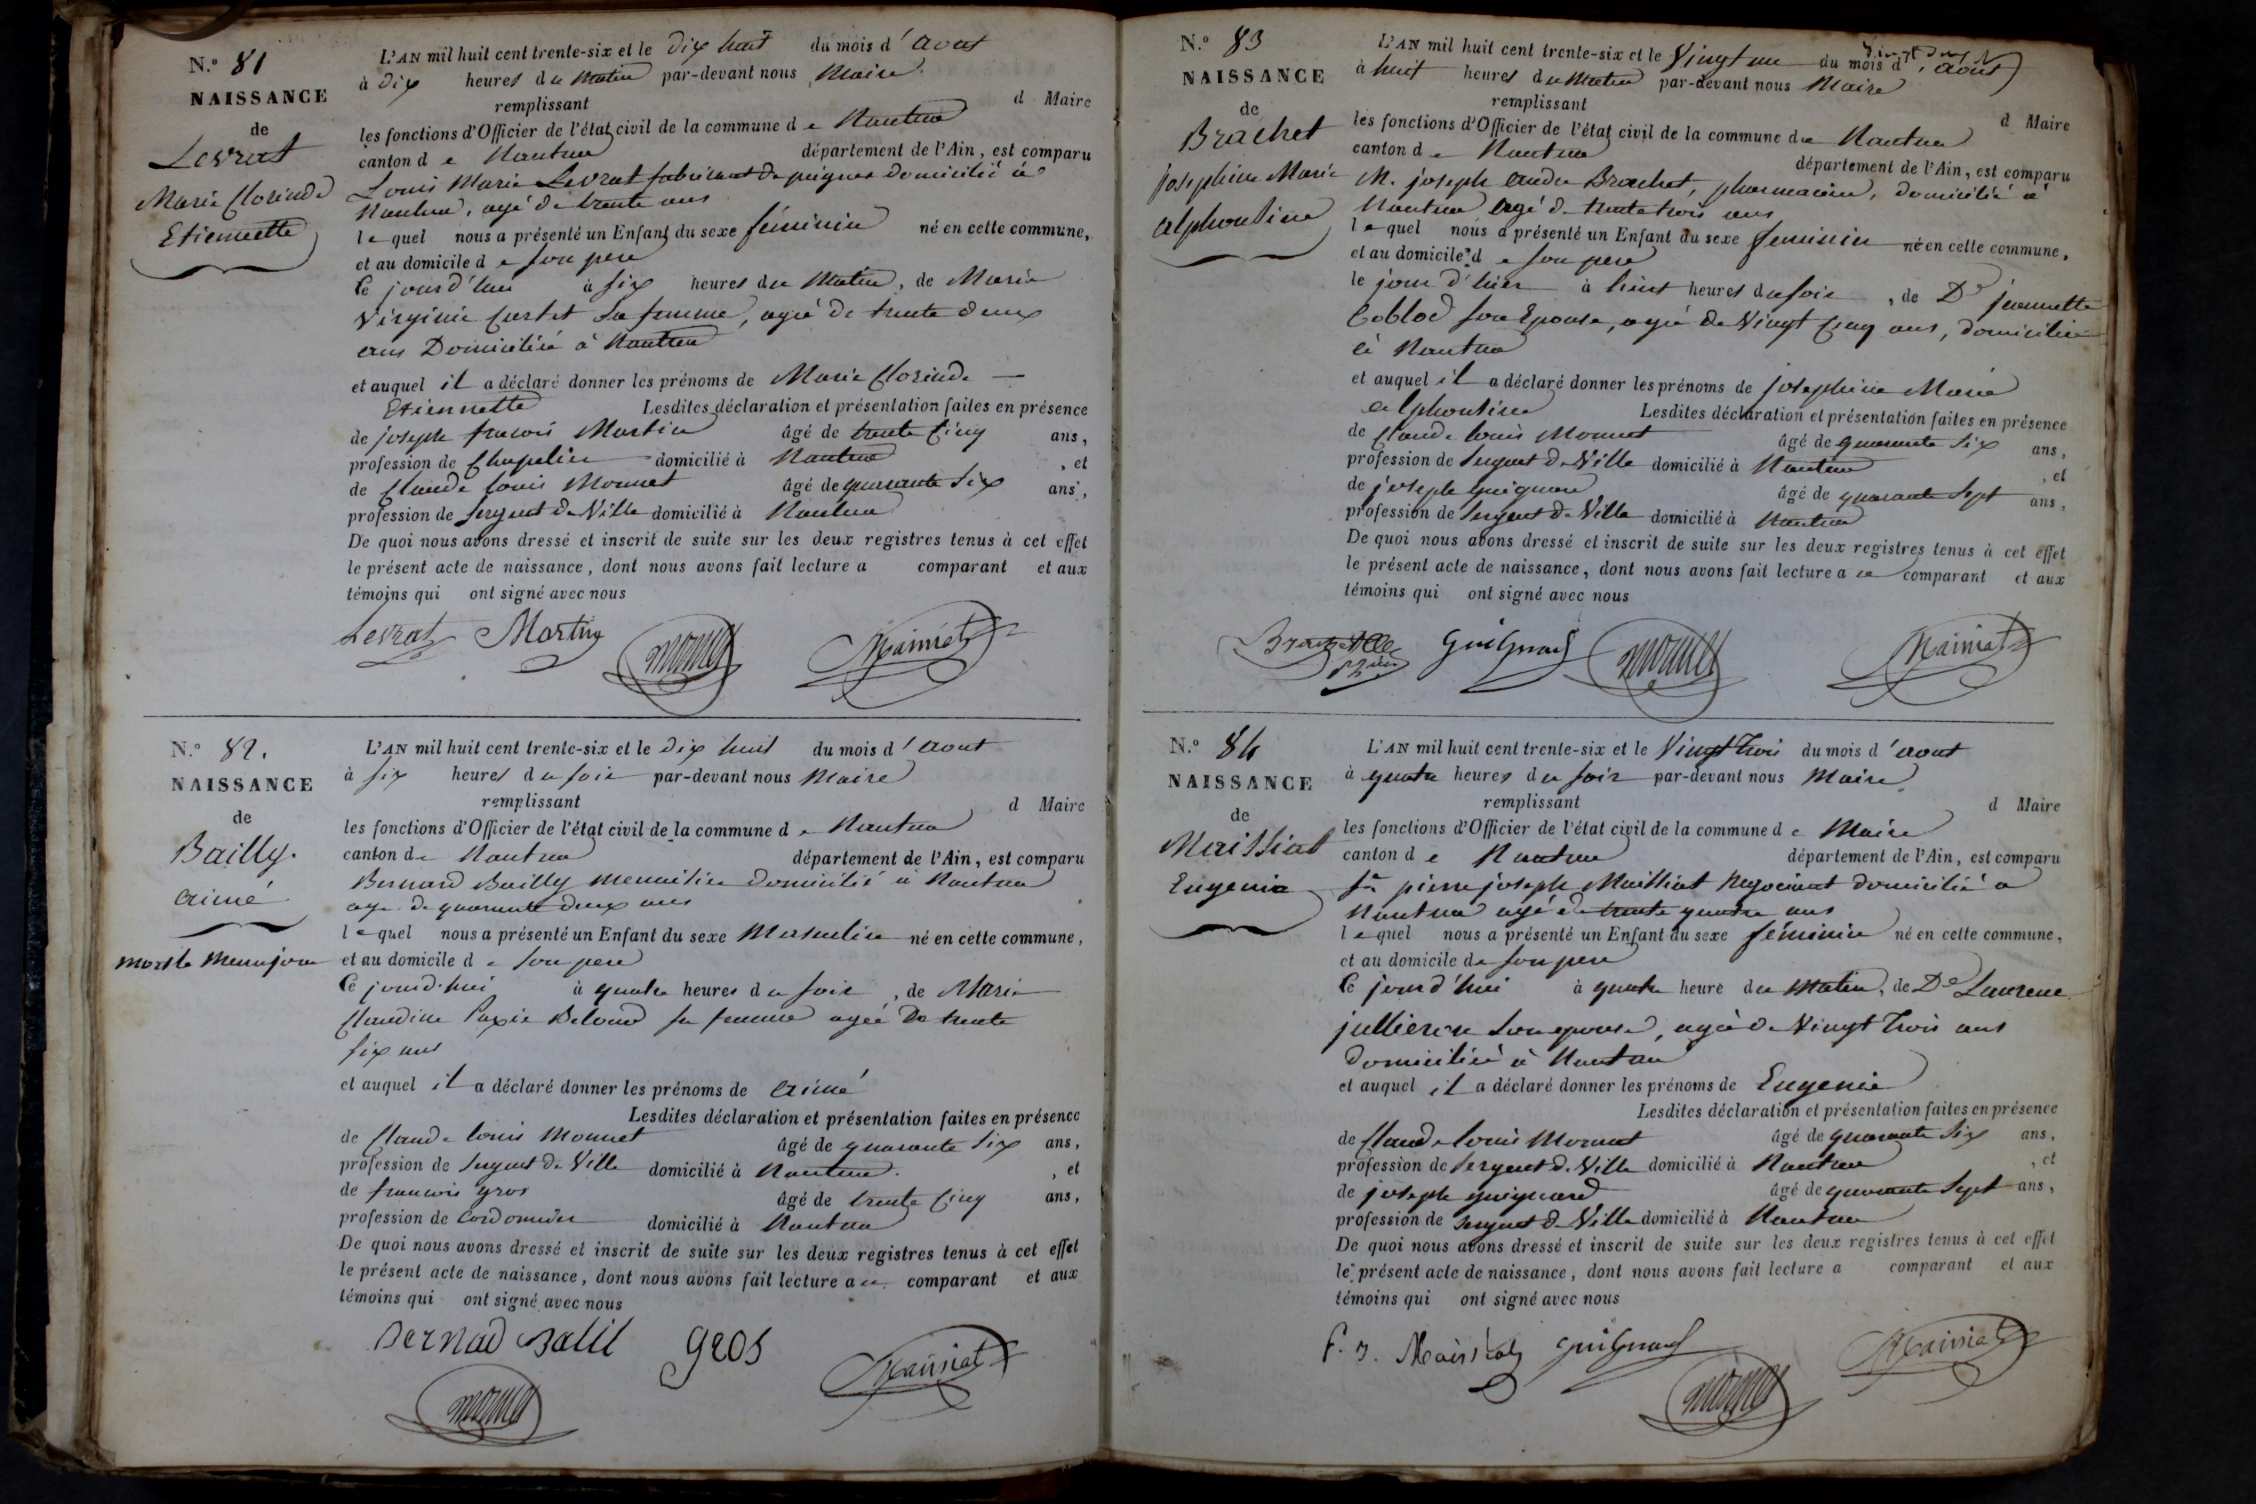 N.° 81
NAISSANCE
de
Levrat
Marie Clorinde
Etiennette
L'AN mil huit cent trente-six et le dix huit du mois d'aout
à dix heures du matin par-devant nous Maire
remplissant d Maire
les fonctions d'Officier de l'état civil de la commune de Nantua
canton de Nantua département de l'Ain, est comparu
Louis Marie Levrat fabricant de peignes domicilié à
Nantua, agé de trente ans
lequel nous a présenté un Enfant du sexe féminin né en cette commune,
et au domicile de son pere
Ce jourd'hui à six heures du matin, de Marie
Virginie Curtet sa femme, agée de trente deux
ans Domiciliée à Nantua
et auquel il a déclaré donner les prénoms de Marie Clorinde
Etiennette Lesdites déclaration et présentation faites en présence
de joseph francois Martin âgé de trente cinq ans,
profession de Chapelier domicilié à Nantua, et
de Claude Louis Monnet âgé de quarante six ans,
profession de Sergent de Ville domicilié à Nantua
De quoi nous avons dressé et inscrit de suite sur les deux registres tenus à cet effet
le présent acte de naissance, dont nous avons fait lecture a comparant et aux
témoins qui ont signé avec nous
Levrat Martin Monnet Maissiat
N.° 82.
NAISSANCE
de
Bailly.
aimé
mort le meme jour
L'AN mil huit cent trente-six et le dix huit du mois d'aout
à six heures du soir par-devant nous Maire
remplissant d Maire
les fonctions d'Officier de l'état civil de la commune de Nantua
canton de Nantua département de l'Ain, est comparu
Bernard Bailly menuisier domicilié à Nantua
age de quarante deux ans
lequel nous a présenté un Enfant du sexe Masculin né en cette commune,
et au domicile de son pere
Ce jourd'hui à quatre heures du soir, de Marie
Claudine sa femme agée De trente
six ans
et auquel il a déclaré donner les prénoms de aimé
Lesdites déclaration et présentation faites en présence
de Claude Louis Monnet âgé de quarante six ans,
profession de Sergent de Ville domicilié à Nantua, et
de francois gros âgé de trente cinq ans,
profession de Cordonnier domicilié à Nantua
De quoi nous avons dressé et inscrit de suite sur les deux registres tenus à cet effet
le présent acte de naissance, dont nous avons fait lecture au comparant et aux
témoins qui ont signé avec nous
Bernad Balil gros Maissiat
Monnet
N.° 83
NAISSANCE
de
Brachet
josephine Marie
alphonsine
Vingt deux
L'AN mil huit cent trente-six et le Vingt un du mois d'aout
à huit heures du matin par-devant nous Maire
remplissant d Maire
les fonctions d'Officier de l'état civil de la commune de Nantua
canton de Nantua département de l'Ain, est comparu
M. joseph andre Brachet, pharmacien, domicilié à
Nantua agé de trente trois ans
lequel nous a présenté un Enfant du sexe feminin né en cette commune,
et au domicile de son pere
le jour d'hier à huit heures du soir, de De jeannette
Coblod son Epouse, agée de Vingt Cinq ans, domiciliée
à Nantua
et auquel il a déclaré donner les prénoms de josephine Marie
alphonsine Lesdites déclaration et présentation faites en présence
de Claude Louis Monnet âgé de quarante six ans,
profession de Sergent de Ville domicilié à Nantua, et
de joseph guignard âgé de quarante sept ans,
profession de Sergent de Ville domicilié à Nantua
De quoi nous avons dressé et inscrit de suite sur les deux registres tenus à cet effet
le présent acte de naissance, dont nous avons fait lecture au comparant et aux
témoins qui ont signé avec nous
Guignard Monnet Maissiat
N.° 84
NAISSANCE
de
Maissiat
Eugenie
L'AN mil huit cent trente-six et le Vingt trois du mois d'aout
à quatre heures du soir par-devant nous Maire
remplissant d Maire
les fonctions d'Officier de l'état civil de la commune de Maire
canton de Nantua département de l'Ain, est comparu
fs pierre joseph Maissiat Negociant domicilié a
Nantua agé de trente quatre ans
lequel nous a présenté un Enfant du sexe féminin né en cette commune,
et au domicile de son pere
Ce jourd'hui à quatre heure du matin, de De Laurence
jullierere son epouse, agée de Vingt trois ans
domiciliée à Nantua
et auquel il a déclaré donner les prénoms de Eugenie
Lesdites déclaration et présentation faites en présence
de Claude Louis Monnet âgé de quarante six ans,
profession de Sergent de Ville domicilié à Nantua, et
de joseph guignard âgé de quarante sept ans,
profession de Sergent de Ville domicilié à Nantua
De quoi nous avons dressé et inscrit de suite sur les deux registres tenus à cet effet
le présent acte de naissance, dont nous avons fait lecture a comparant et aux
témoins qui ont signé avec nous
f. J. Maissiat Guignard Maissiat
Monnet